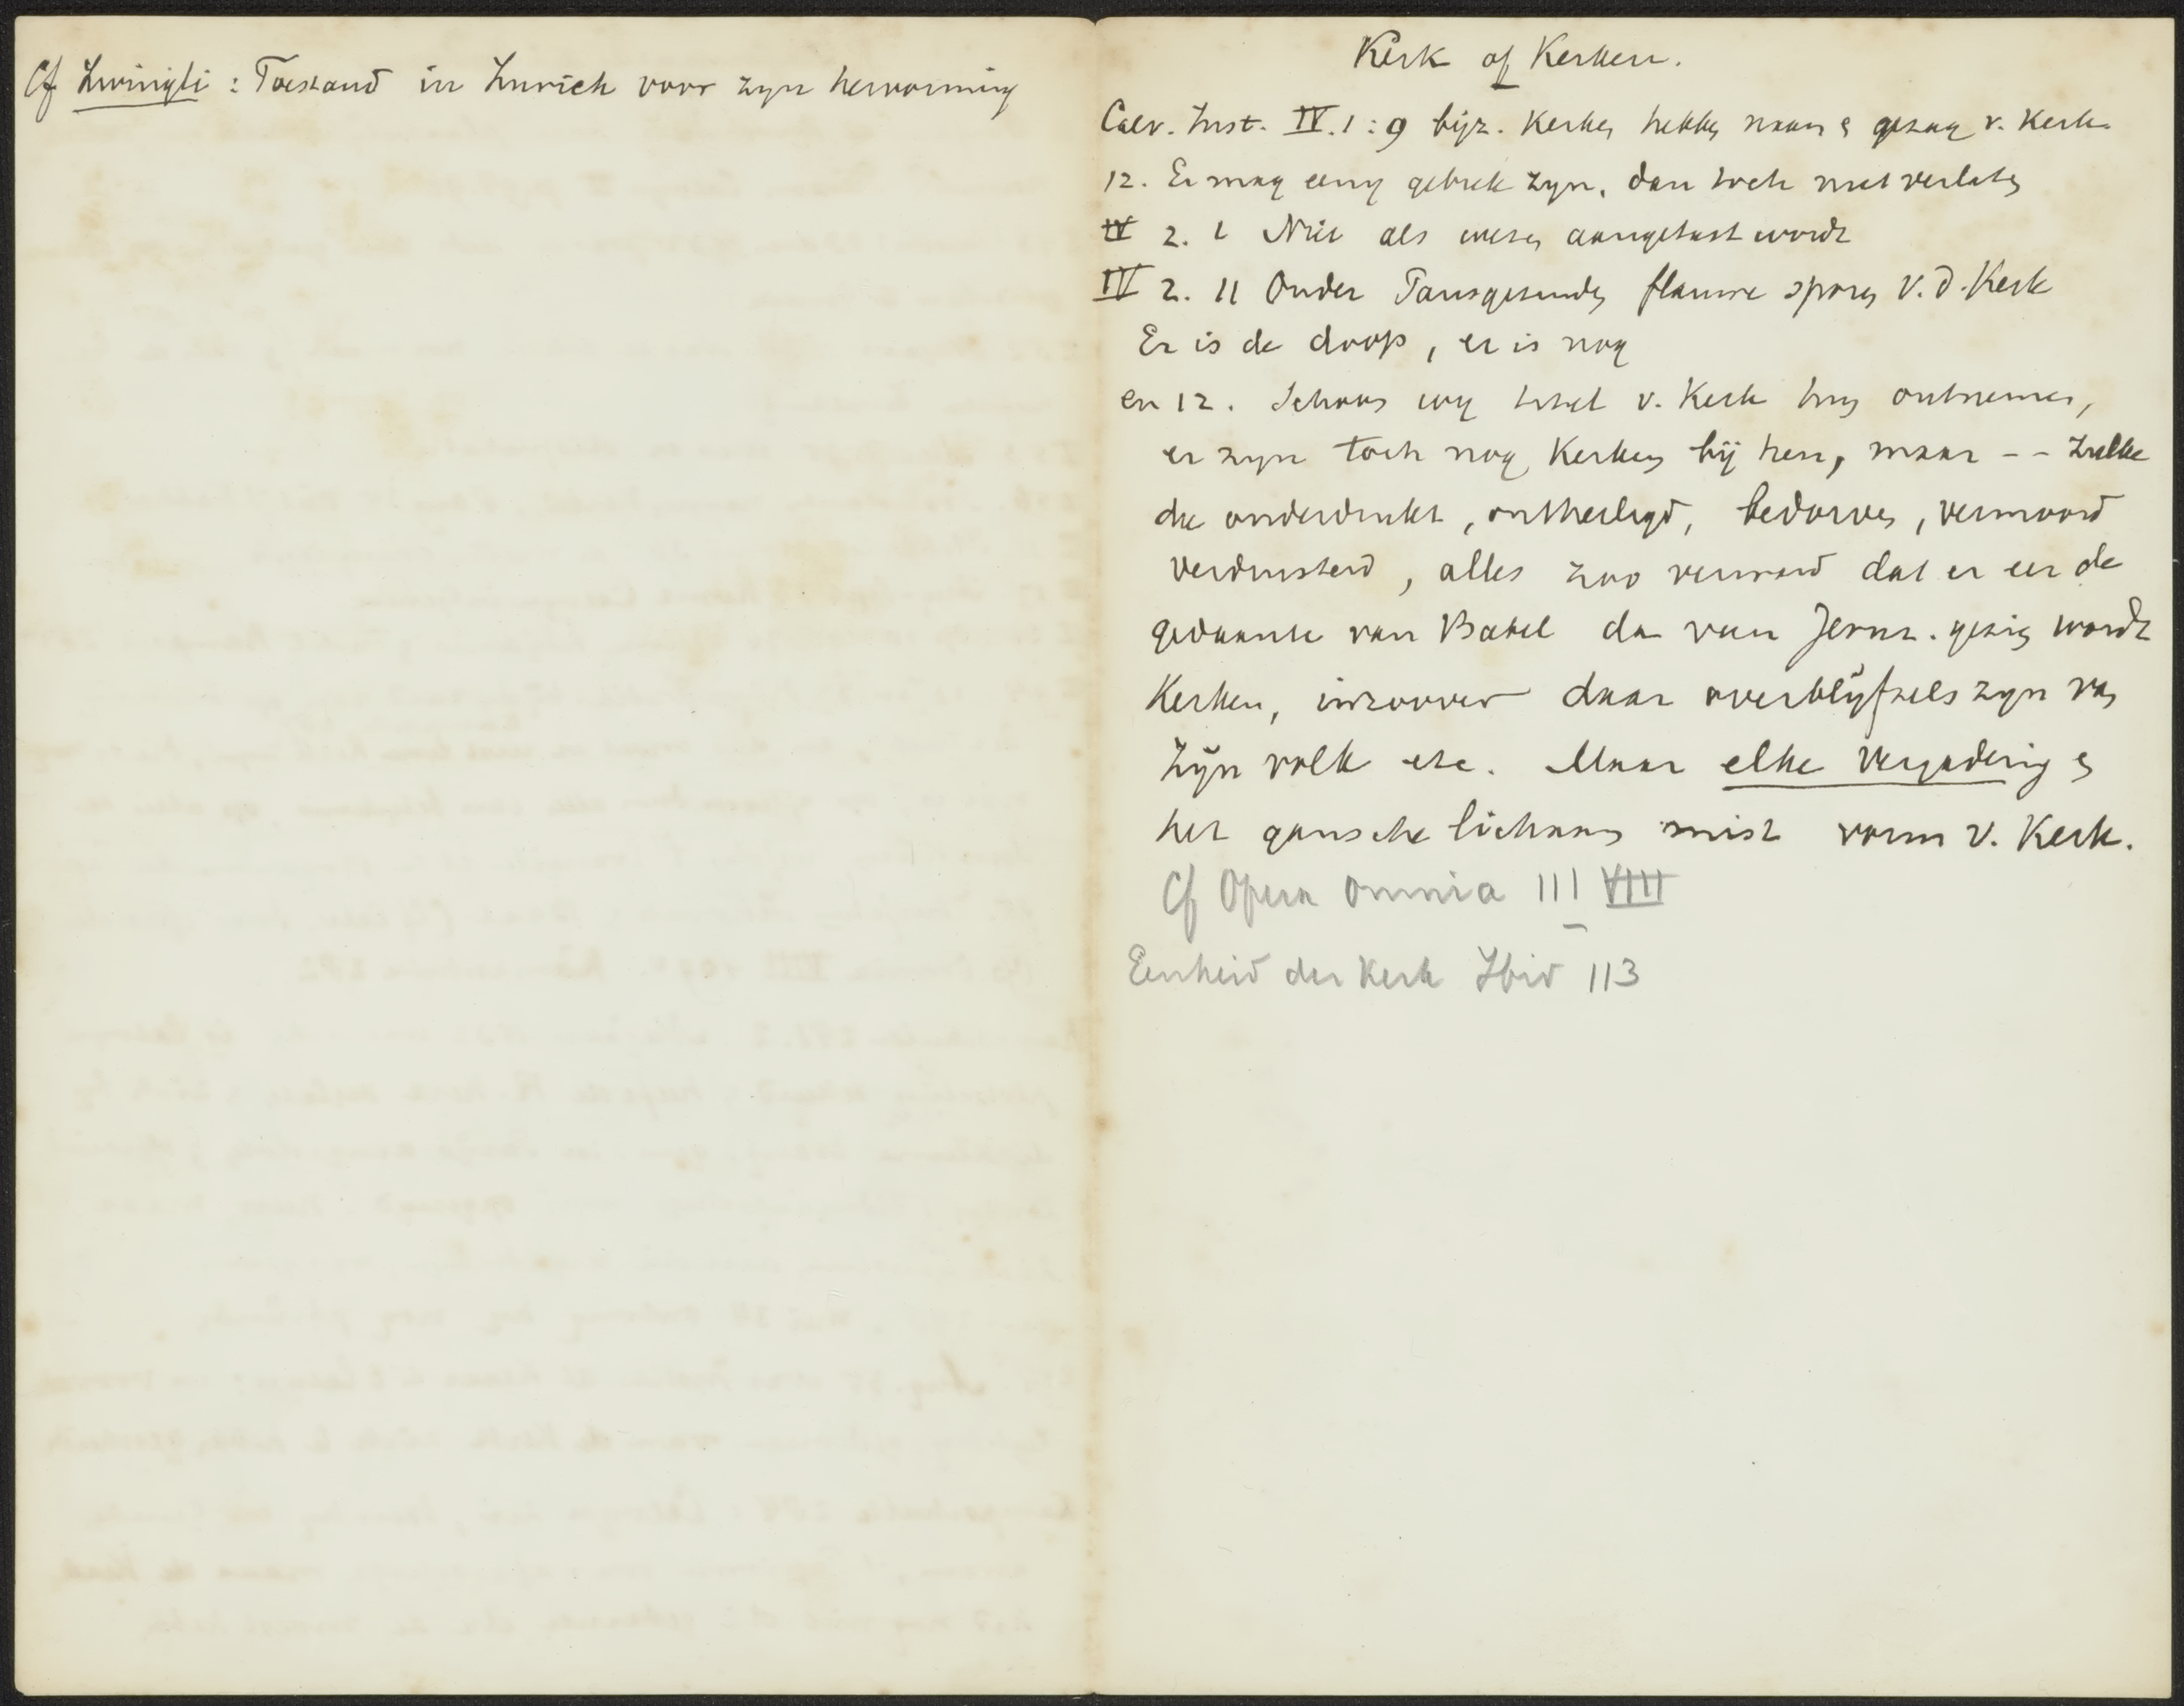 Cf Zwingli : Toestand in Zurich voor zyn hervorming
Kerk of Kerken.
Calv. Inst. IV. 1 : 9 bijz. Kerken hebben naam en gezag v. Kerk.
12. Er mag eenig gebrek zyn, dan toch niet verlaten
IV 2. 1 Niet als wezen aangetast wordt
IV 2. 11 Onder Pausgezinden flauwe sporen v. d. Kerk
Er is de doop, er is nog
en 12. Schoon wy titel v. Kerk hun ontnemen,
er zyn toch nog Kerken bij hen, maar -- zulke
die onderdrukt, ontheiligd, bedorven, vermoord
verduisterd, alles zoo verward dat er eer de
gedaante van Babel da van Jeruz. gezien wordt
Kerken, inzoover daar overblijfzels zyn van
Zijn volk etc. Maar elke vergadering en
het gansche lichaam mist vorm v. Kerk.
Cf Opera Omnia III VIII
Eenheid der Kerk Ibid 113